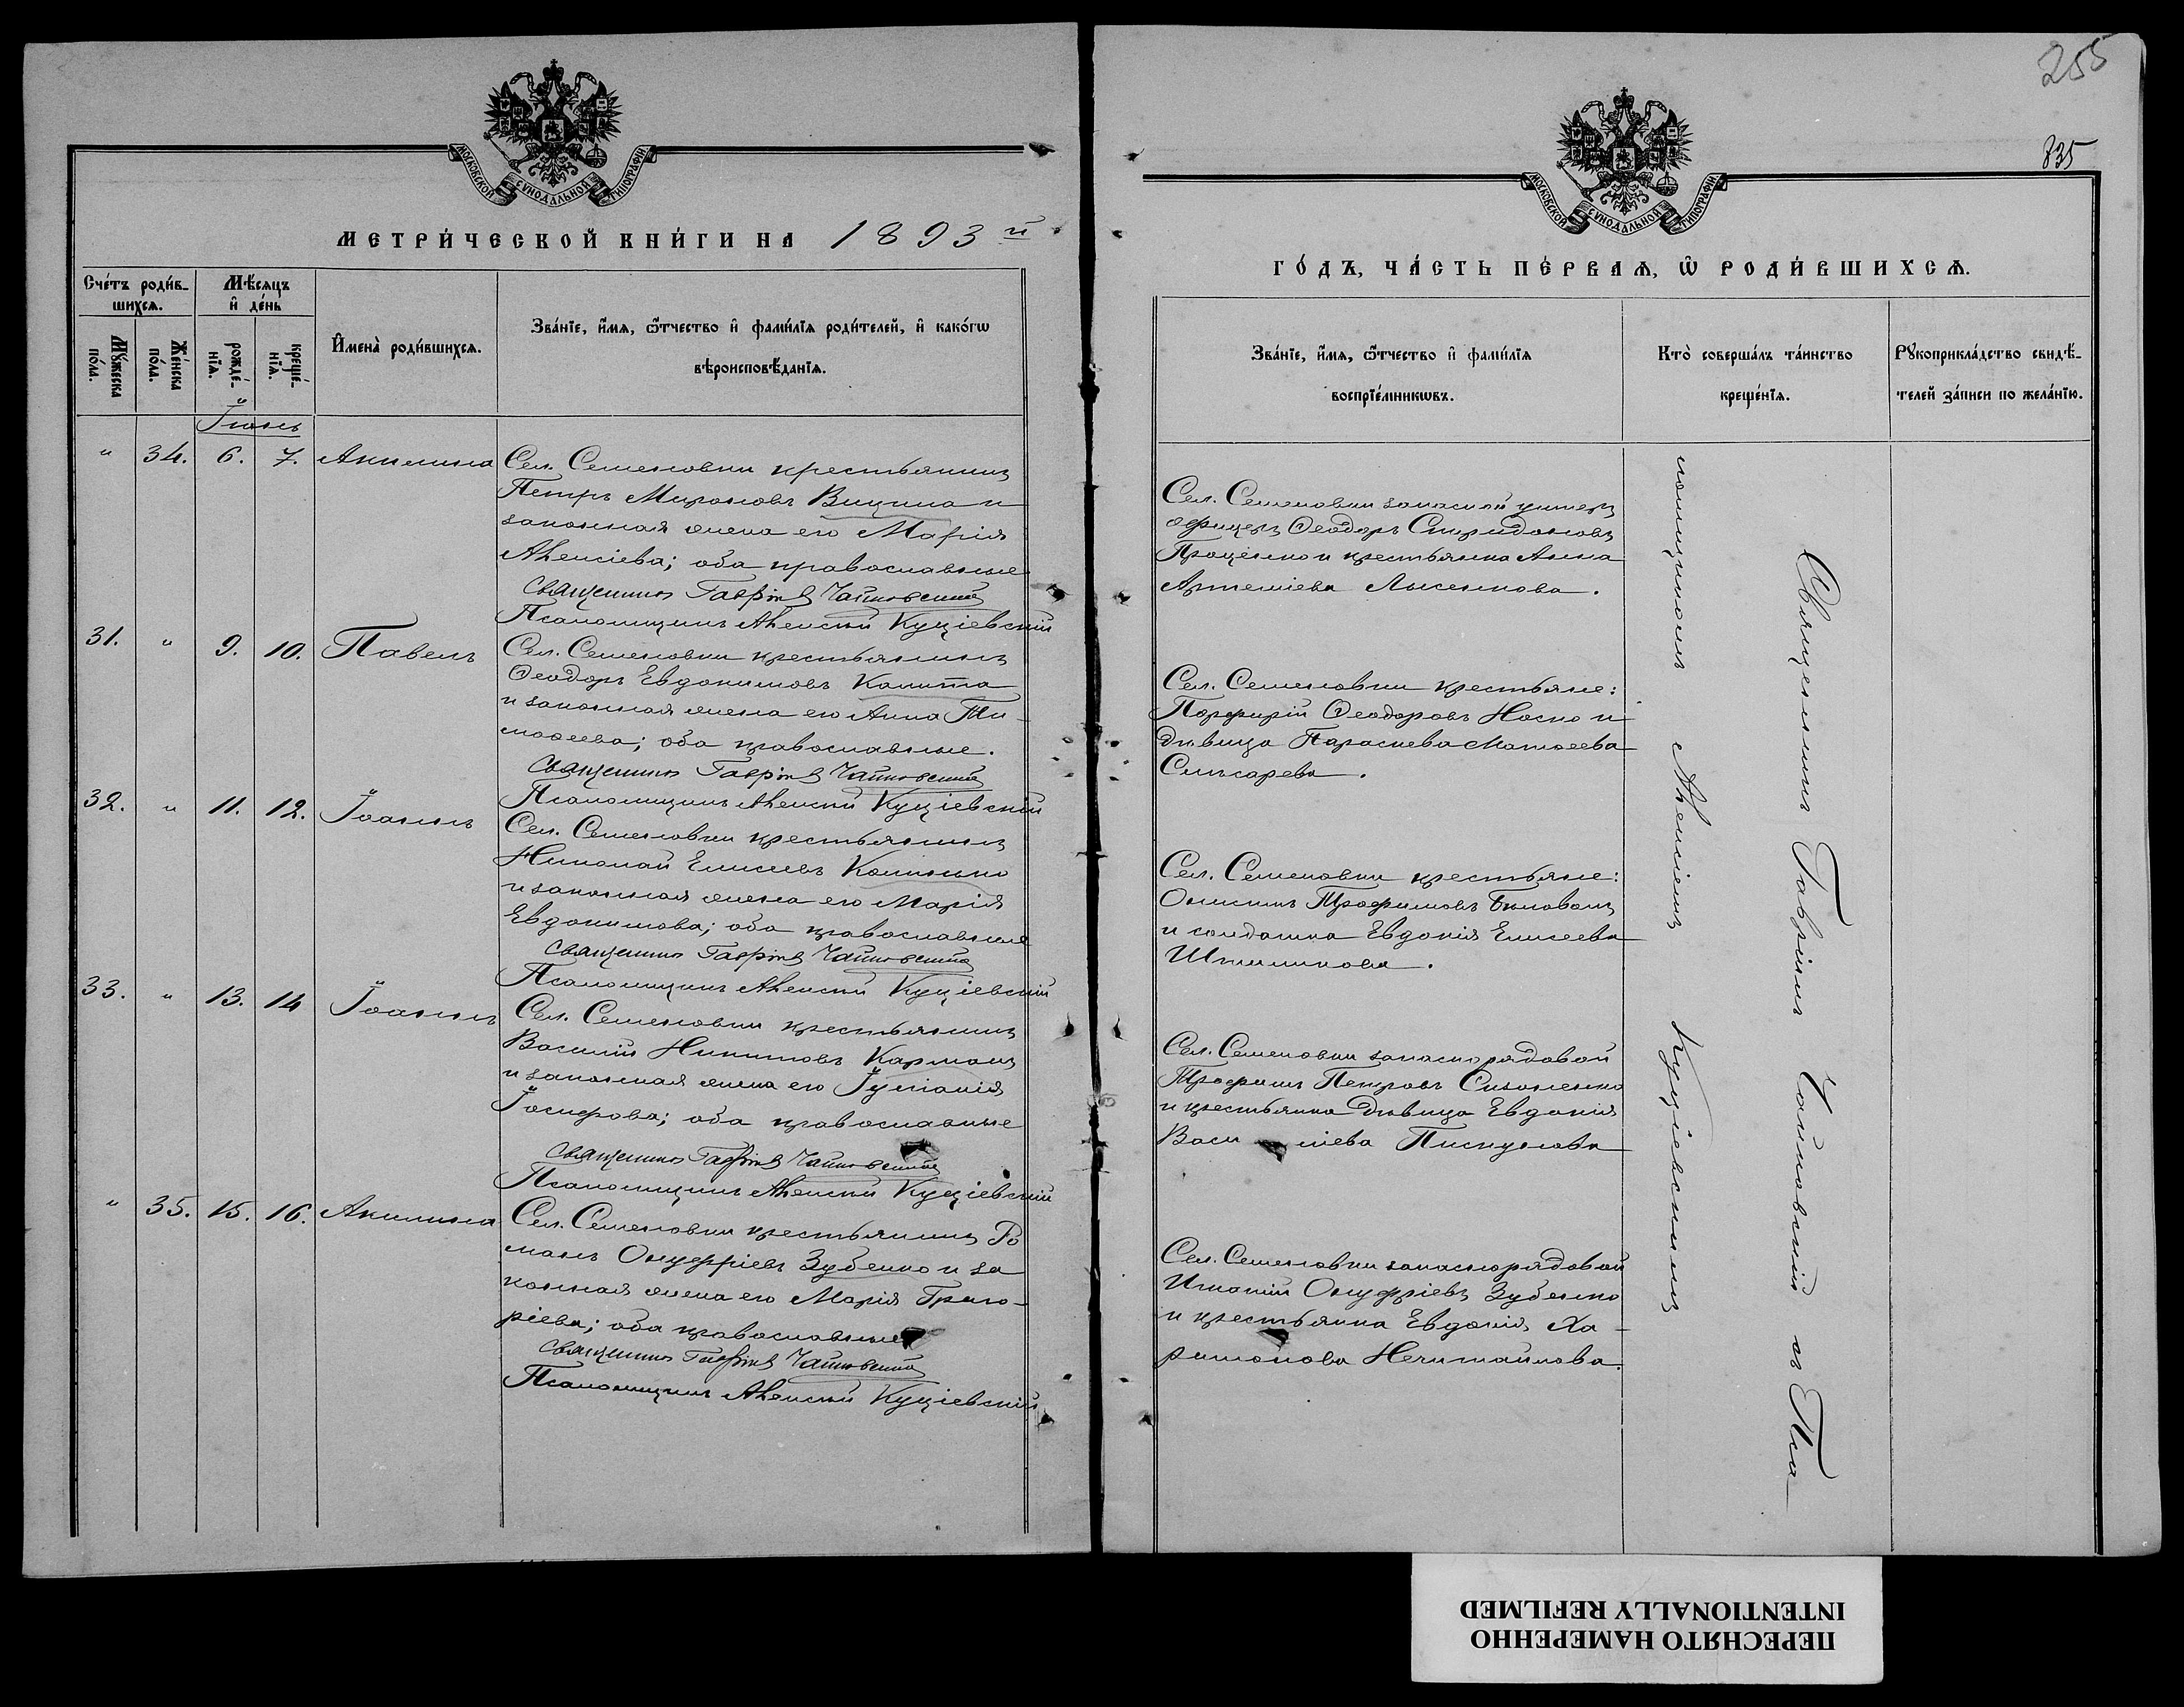 МОСКОВСКОЙ СѴНОДАЛЬНОЙ ТИПОГРАФІИ
МЕТРИ́ЧЕСКОЙ КНИ́ГИ НА 1893 й
Сче́тъ роди́в-
шихсѧ.
Мѣ́сѧцъ
и҆ де́нь
Мꙋ́жеска
по́ла.
Же́нска
по́ла.
рожде́-
нїѧ.
креще́-
нїѧ.
И҆мена̀ роди́вшихсѧ.
Зва́нїе, и҆́мѧ, ѻ҆́тчество и҆ фами́лїѧ роди́телей, и҆ како́гѡ
вѣроисповѣ́данїѧ.
Іюнь
" 34. 6. 7. Акилина
Сел. Семеновки крестьянинъ
Петръ Мироновъ Вицина и
законная жена его Марія
Алексіева; оба православные
Священникъ Гавріилъ Чайковскій
Псаломщикъ Алексій Куціевскій
31. " 9. 10. Павелъ
Сел. Семеновки крестьянинъ
Ѳеодоръ Евдокимовъ Калита
и законная жена его Анна Ти-
моѳеева; оба православные.
Священникъ Гавріилъ Чайковскій
Псаломщикъ Алексій Куціевскій
32. " 11. 12. Іоаннъ
Сел. Семеновки крестьянинъ
Николай Елисеевъ
и законная жена его Марія
Евдокимова; оба православные
Священникъ Гавріилъ Чайковскій
Псаломщикъ Алексій Куціевскій
33. " 13. 14 Іоаннъ
Сел. Семеновки крестьянинъ
Василій Никитовъ Карманъ
и законная жена его Іуліанія
Іосифова; оба православные
Священникъ Гавріилъ Чайковскій
Псаломщикъ Алексій Куціевскій
" 35. 15. 16. Акилина
Сел. Семеновки крестьянинъ Ро
манъ Онуфріевъ Зубенко и за
конная жена его Марія Григо-
ріева; оба православные
Священникъ Гавріилъ Чайковскій
Псаломщикъ Алексій Куціевскій
255
835
МОСКОВСКОЙ СѴНОДАЛЬНОЙ ТИПОГРАФІИ
ГО́ДЪ, ЧА́СТЬ ПЕ́РВАѦ, Ѡ҆ РОДИ́ВШИХСѦ.
Зва́нїе, и҆́мѧ, ѻ҆́тчество и҆ фами́лїѧ
воспрїе́мникѡвъ.
Кто̀ соверша́лъ та́инство
креще́нїѧ.
Рꙋкоприкла́дство свидѣ́-
телей за́писи по жела́нїю.
Сел. Семеновки запасной унтеръ
офицеръ Ѳеодоръ Спиридоновъ
Проценко и крестьянка Анна
Артеміева Лысенкова.
Сел. Семеновки крестьяне:
Порфирій Ѳеодоровъ Носко и
дѣвица Параскева Матѳеева
Слѣсарева.
Сел. Семеновки крестьяне:
Онисимъ Трофимовъ Бѣловолъ
и солдатка Евдокія Елисеева
Сел. Семеновки запаснорядовой
Трофимъ Петровъ
и крестьянка дѣвица Евдокія
Васи ліева Пискунова
Сел. Семеновки запаснорядовой
Игнатій Онуфріевъ Зубенко
и крестьянка Евдокія Ха-
ритонова Нечитайлова.
Священникъ Гавріилъ Чайковскій съ Пса-
ломщикомъ Алексіемъ Куціевскимъ
ПЕРЕСНЯТО НАМЕРЕННО
INTENTIONALLY REFILMED